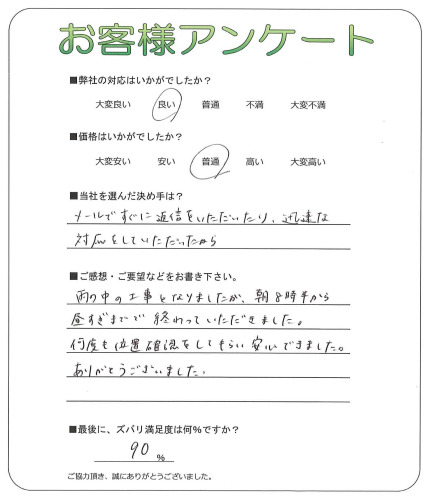 お客様アンケート
■弊社の対応はいかがでしたか？
大変良い 良い 普通 不満 大変不満
■価格はいかがでしたか？
大変安い 安い 普通 高い 大変高い
■当社を選んだ決め手は？
メールですぐに返信をいただいたり、迅速な
対応をしていただったから
■ご感想・ご要望などをお書き下さい。
雨の中の工事となりましたが、朝8時半から
昼すぎまでで終わっていただきました。
何度も位置確認をしてもらい安心できました。
ありがとうございました.
■最後に、ズバリ満足度は何％ですか？
90 ％
ご協力頂き、誠にありがとうございました。